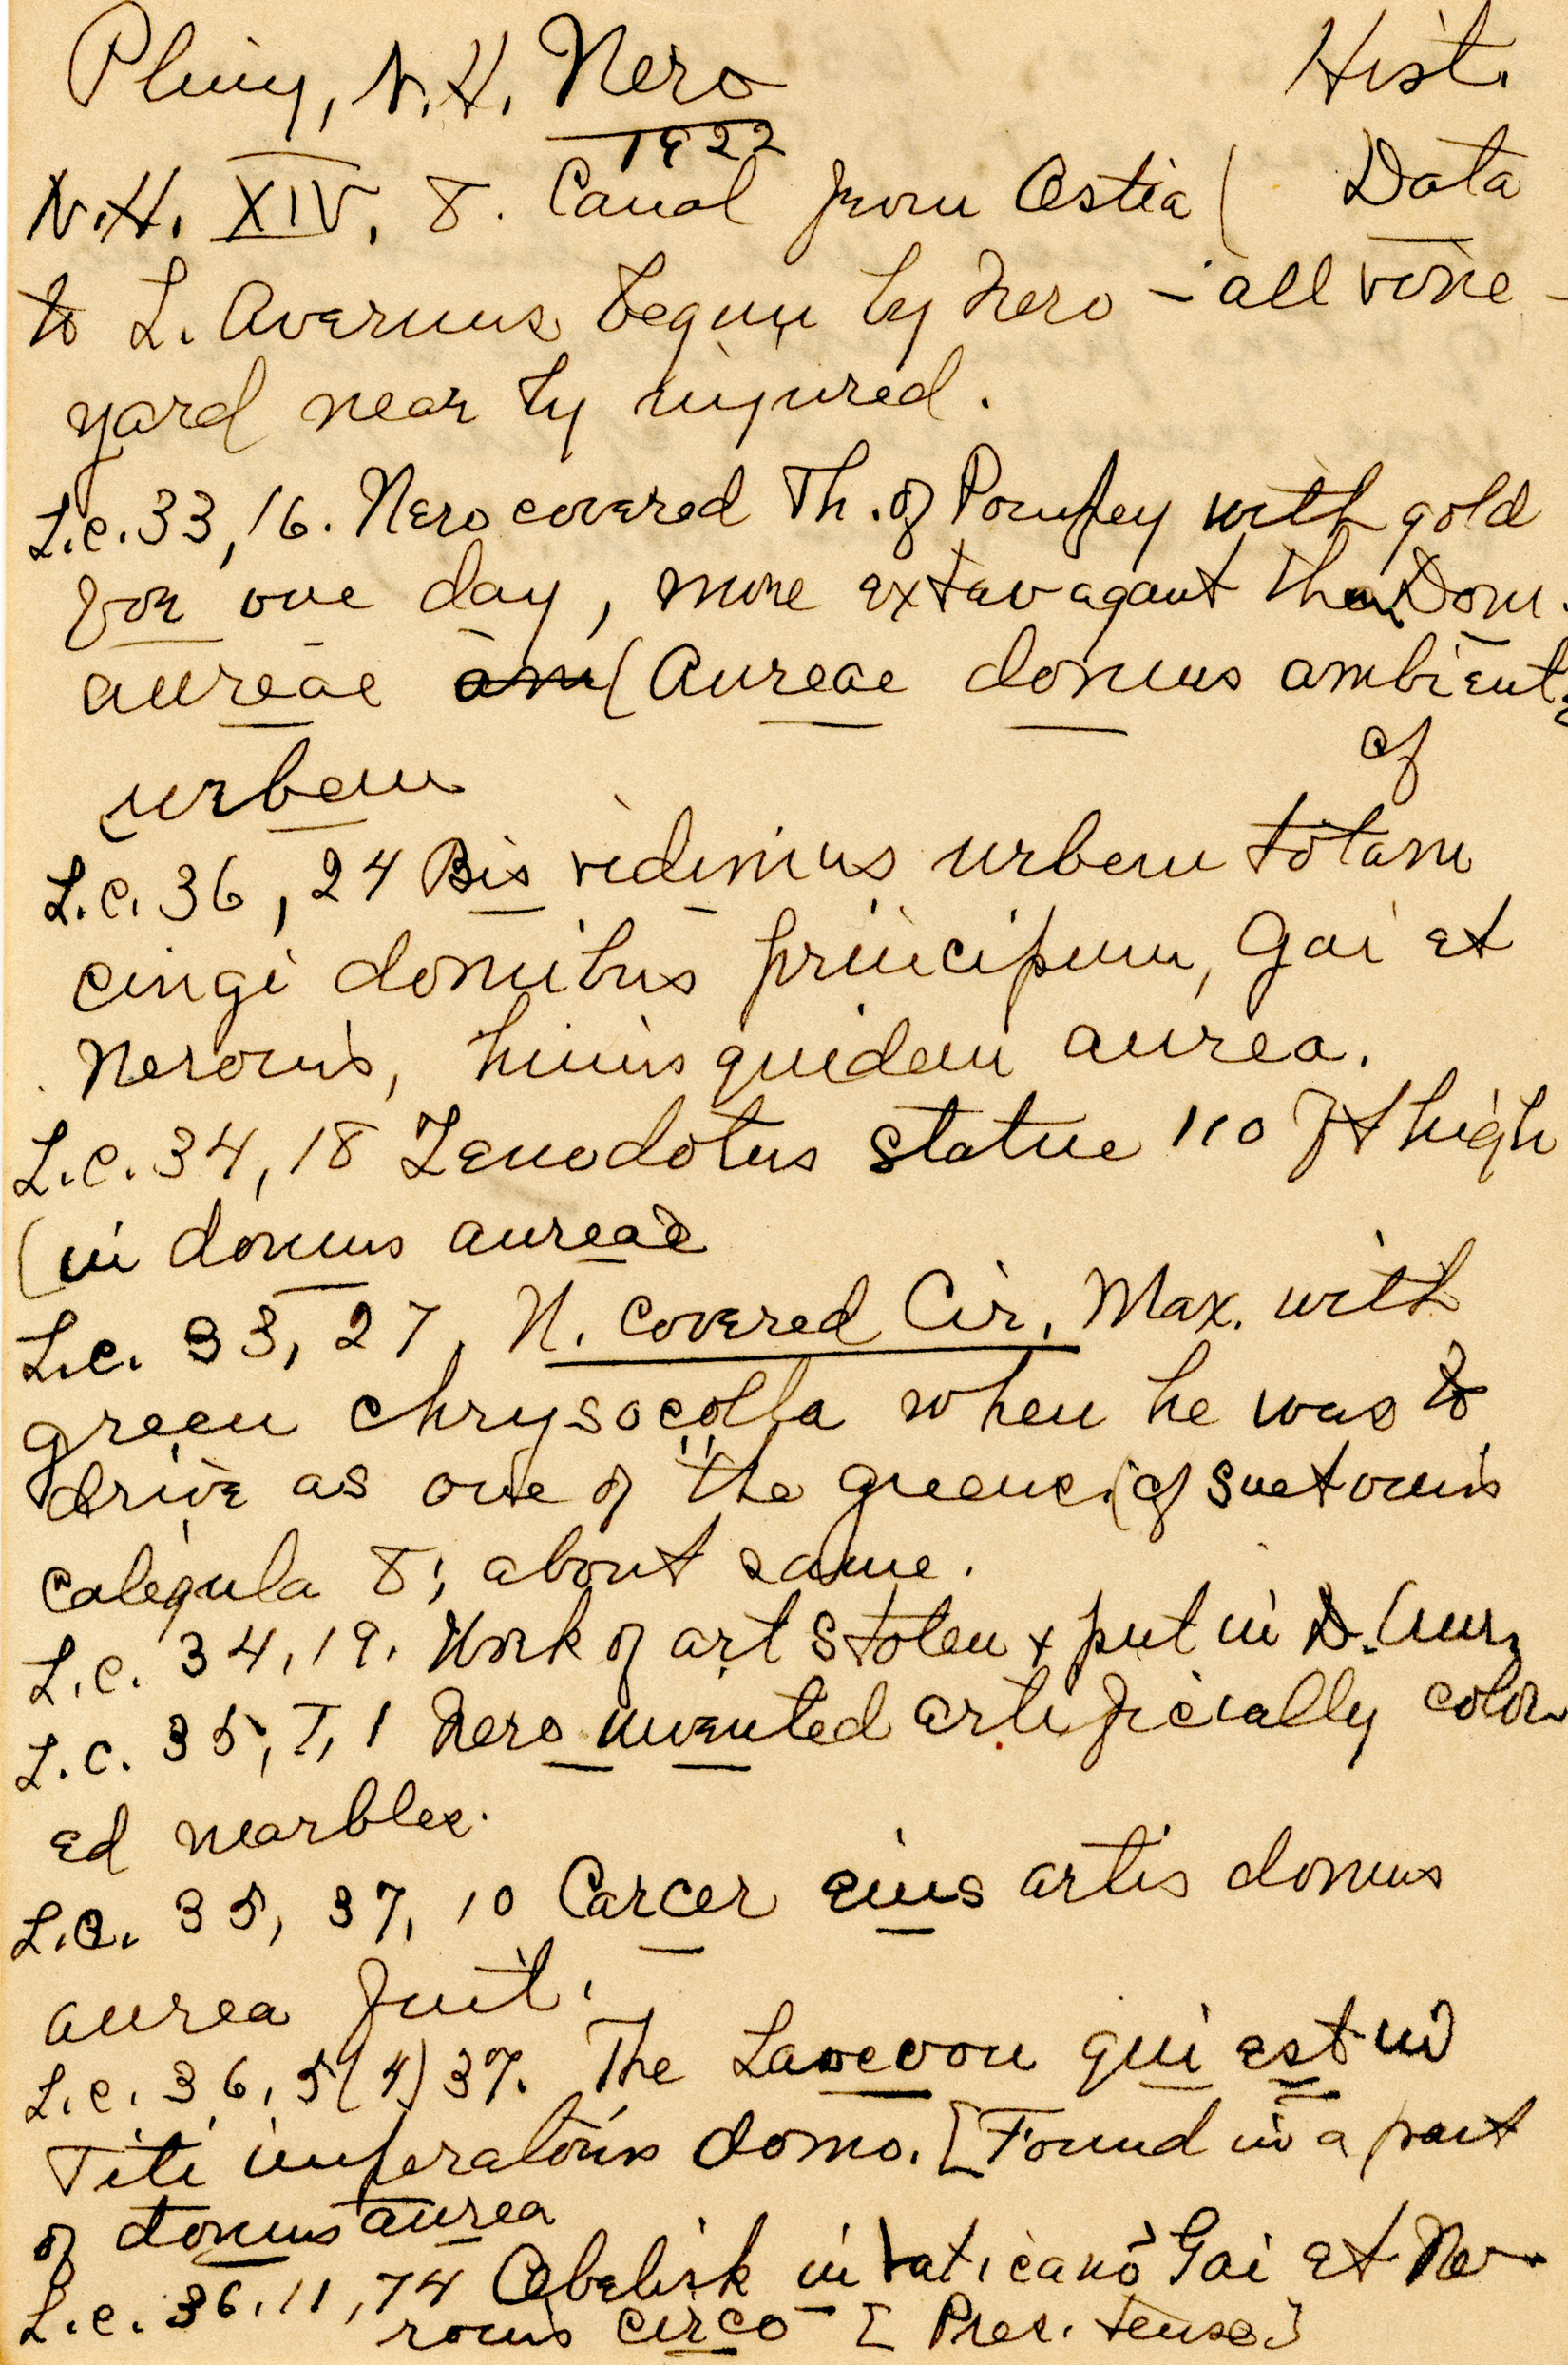 Pliny, N.H. Nero Hist.
1922
N.H. XIV, 8. Canal from Ostia ( Data
to L. Avernus begun by Nero – all vine-
yard near by injured.
L.c. 33, 16. Nero covered Th. of Pompey with gold
for one day, more extravagant than Dom.
aureae am (Aureae domus ambientis
urbem cf
L.c. 36, 24 Bis vidimus urbem totam
cingi domibus principum, Gai et
Neronis, huius quidem aurea.
L.c. 34, 18 Zenodotus statue 110 ft high
(in domus aureae
L.c. 33, 27, N. covered Cir. Max. with
green chrysocolla when he was to
drive as one of "the greens. (cf Suetonius
Caligula 8; about same.
L.c. 34, 19. Work of art stolen + put in D. Aur.
L.c. 35, 1, 1 Nero invented artificially color
ed marbles.
L.c. 35, 37, 10 Carcer eius artis domus
aurea fuit.
L.c. 36, 5 (4) 37. The Laocoon qui est in
Titi imperatoris domo. [Found in a part
of domus aurea
L.c. 36. 11, 74 Obelisk in Vaticano Gai et Ne-
ronis circo [ Pres. tense.]